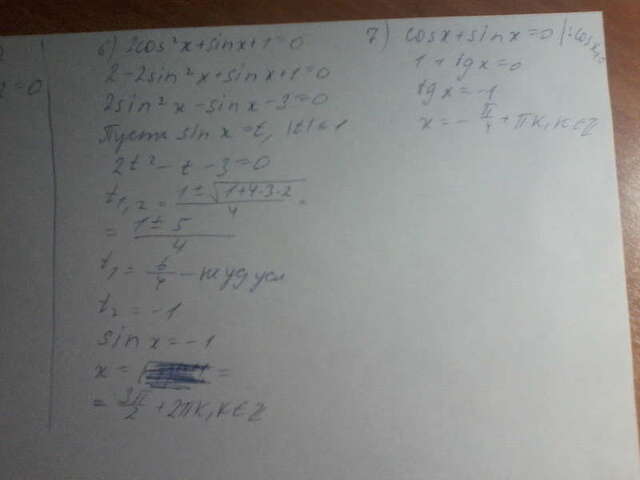 =0
6) 2cos²x+sinx+1=0
2-2sin²x+sinx+1=0
2sin²x-sinx-3=0
Пусть sinx=t, |t|≤1
2t²-t-3=0
t₁,₂=(1±√(1+4·3·2))/4=
=(1±5)/4
t₁=6/4 - не уд усл
t₂=-1
sinx=-1
x= =
=3π/2+2πk, k∈Z
7) cosx+sinx=0 |:cosx
1+tgx=0
tgx=-1
x=-π/4+πk, k∈Z